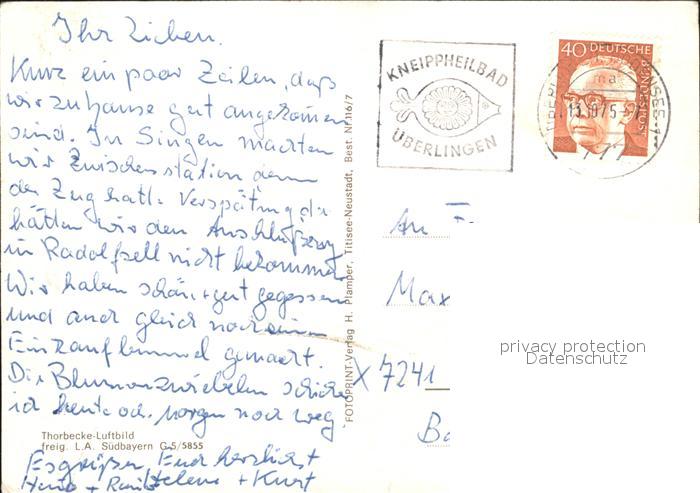 Ihr Lieben.
Kurz ein paar Zeilen, daß
wir zuhause gut angekommen
sind. In Singen machten
wir Zwischenstation denn
der Zug hatte Verspätung, da
hätten wir den Anschlußzug
in Radolfzell nicht bekommen
Wir haben schön, + gut gegessen
und auch gleich noch einen
Einkaufbummel gemacht.
Die Blumenzwiebeln schicke
ich heute od. morgen noch weg
Thorbecke-Luftbild
freig. L.A. Südbayern G 5/5855
Es grüßen Euch herzlichst
Helene + Kurt
FOTOPRINT-Verlag H. Plamper, Titisee-Neustadt, Best. Nr. 116/7
KNEIPPHEILBAD
ÜBERLINGEN
40 DEUTSCHE
BUNDESPOST
An F
Max
7241
privacy protection
Datenschutz